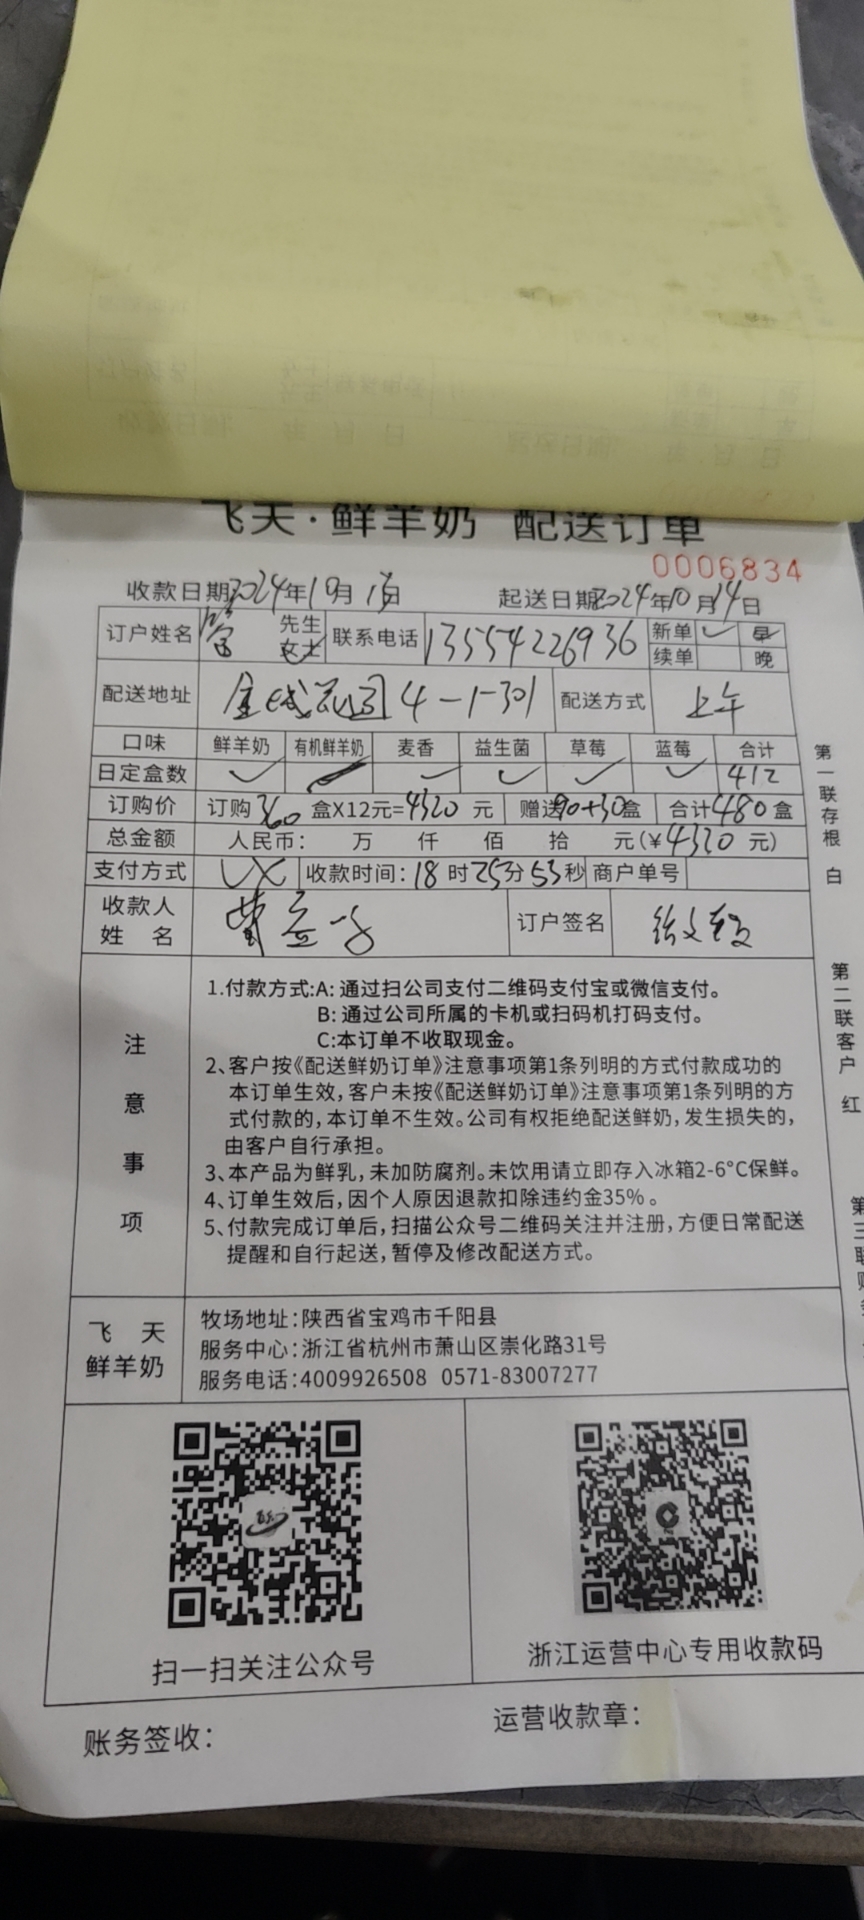 飞天·鲜羊奶 配送订单
0006834
收款日期2024年10月1日 起送日期2024年10月14日
订户姓名 先生 女士 联系电话 13554226936 新单 ✓ 早
续单 晚
配送地址 4-1-301 配送方式 上午
口味 鲜羊奶 有机鲜羊奶 麦香 益生菌 草莓 蓝莓 合计
日定盒数 ✓ ✓ ✓ ✓ ✓ 412
订购价 订购360盒X12元=4320元 赠送90+30盒 合计480盒
总金额 人民币: 万 仟 佰 拾 元(¥4320元)
支付方式 VX 收款时间:18时25分53秒 商户单号
收款人
姓 名 订户签名
注意事项
1.付款方式:A:通过扫公司支付二维码支付宝或微信支付。
B:通过公司所属的卡机或扫码机打码支付。
C:本订单不收取现金。
2、客户按《配送鲜奶订单》注意事项第1条列明的方式付款成功的
本订单生效,客户未按《配送鲜奶订单》注意事项第1条列明的方
式付款的,本订单不生效。公司有权拒绝配送鲜奶,发生损失的,
由客户自行承担。
3、本产品为鲜乳,未加防腐剂。未饮用请立即存入冰箱2-6°C保鲜。
4、订单生效后,因个人原因退款扣除违约金35%。
5、付款完成订单后,扫描公众号二维码关注并注册,方便日常配送
提醒和自行起送,暂停及修改配送方式。
飞 天
鲜羊奶
牧场地址:陕西省宝鸡市千阳县
服务中心:浙江省杭州市萧山区崇化路31号
服务电话:4009926508 0571-83007277
扫一扫关注公众号
浙江运营中心专用收款码
账务签收:
运营收款章:
第一联存根 白
第二联客户 红
第三联财务